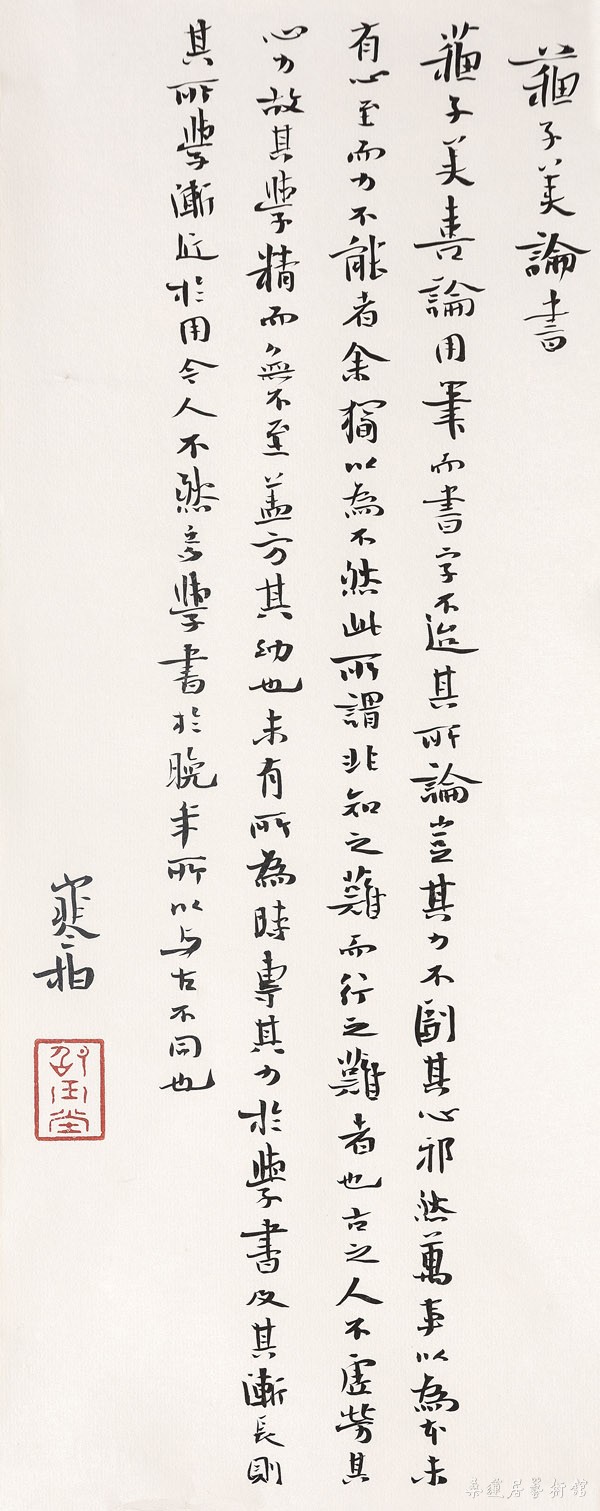 蘇子美論書
蘇子美喜論用筆而書字不迨其所論豈其力不副其心邪然萬事以為本未
有心至而力不能者余獨以為不然此所謂非知之難而行之難者也古之人不虛勞其
心力故其學精而無不至蓋方其幼也未有所為時專其力於學書及其漸長則
其所學漸近於用今人不然多學書於晚年所以与古不同也
寒柏